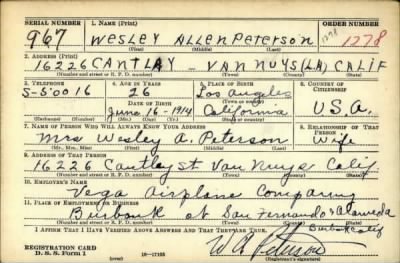 SERIAL NUMBER 1. NAME (Print) ORDER NUMBER
967 Wesley Allen Peterson 1278 1278
(First) (Middle) (Last)
2. ADDRESS (Print)
16226 CANTLAY VAN NUYS (LA) CALIF
(Number and street or R. F. D. number) (Town) (County) (State)
3. TELEPHONE 4. AGE IN YEARS 5. PLACE OF BIRTH 6. COUNTRY OF CITIZENSHIP
S-50016 26 Los Angeles
(Town or county)
DATE OF BIRTH
June 16-1914 California U.S.A.
(Exchange) (Number) (Mo.) (Day) (Yr.) (State or country)
7. NAME OF PERSON WHO WILL ALWAYS KNOW YOUR ADDRESS 8. RELATIONSHIP OF THAT PERSON
Mrs Wesley A. Peterson Wife
(Mr., Mrs., Miss) (First) (Middle) (Last)
9. ADDRESS OF THAT PERSON
16226 Cantlay St Van Nuys Calif
(Number and street or R. F. D. number) (Town) (County) (State)
10. EMPLOYER'S NAME
Vega Airplane Company
11. PLACE OF EMPLOYMENT OR BUSINESS
Burbank at San Fernando & Alameda
Burbank Calif
(Number and street or R. F. D. number) (Town) (County) (State)
I AFFIRM THAT I HAVE VERIFIED ABOVE ANSWERS AND THAT THEY ARE TRUE.
REGISTRATION CARD
D. S. S. Form 1 16-17105 W A Peterson
(Registrant's signature)